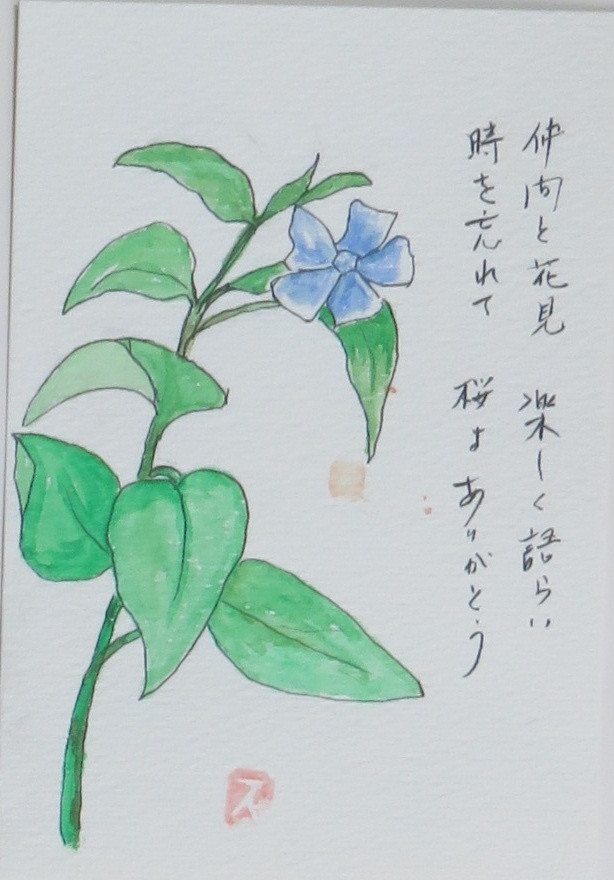 仲間と花見　楽しく語らい
時を忘れて　桜よ ありがとう
ス